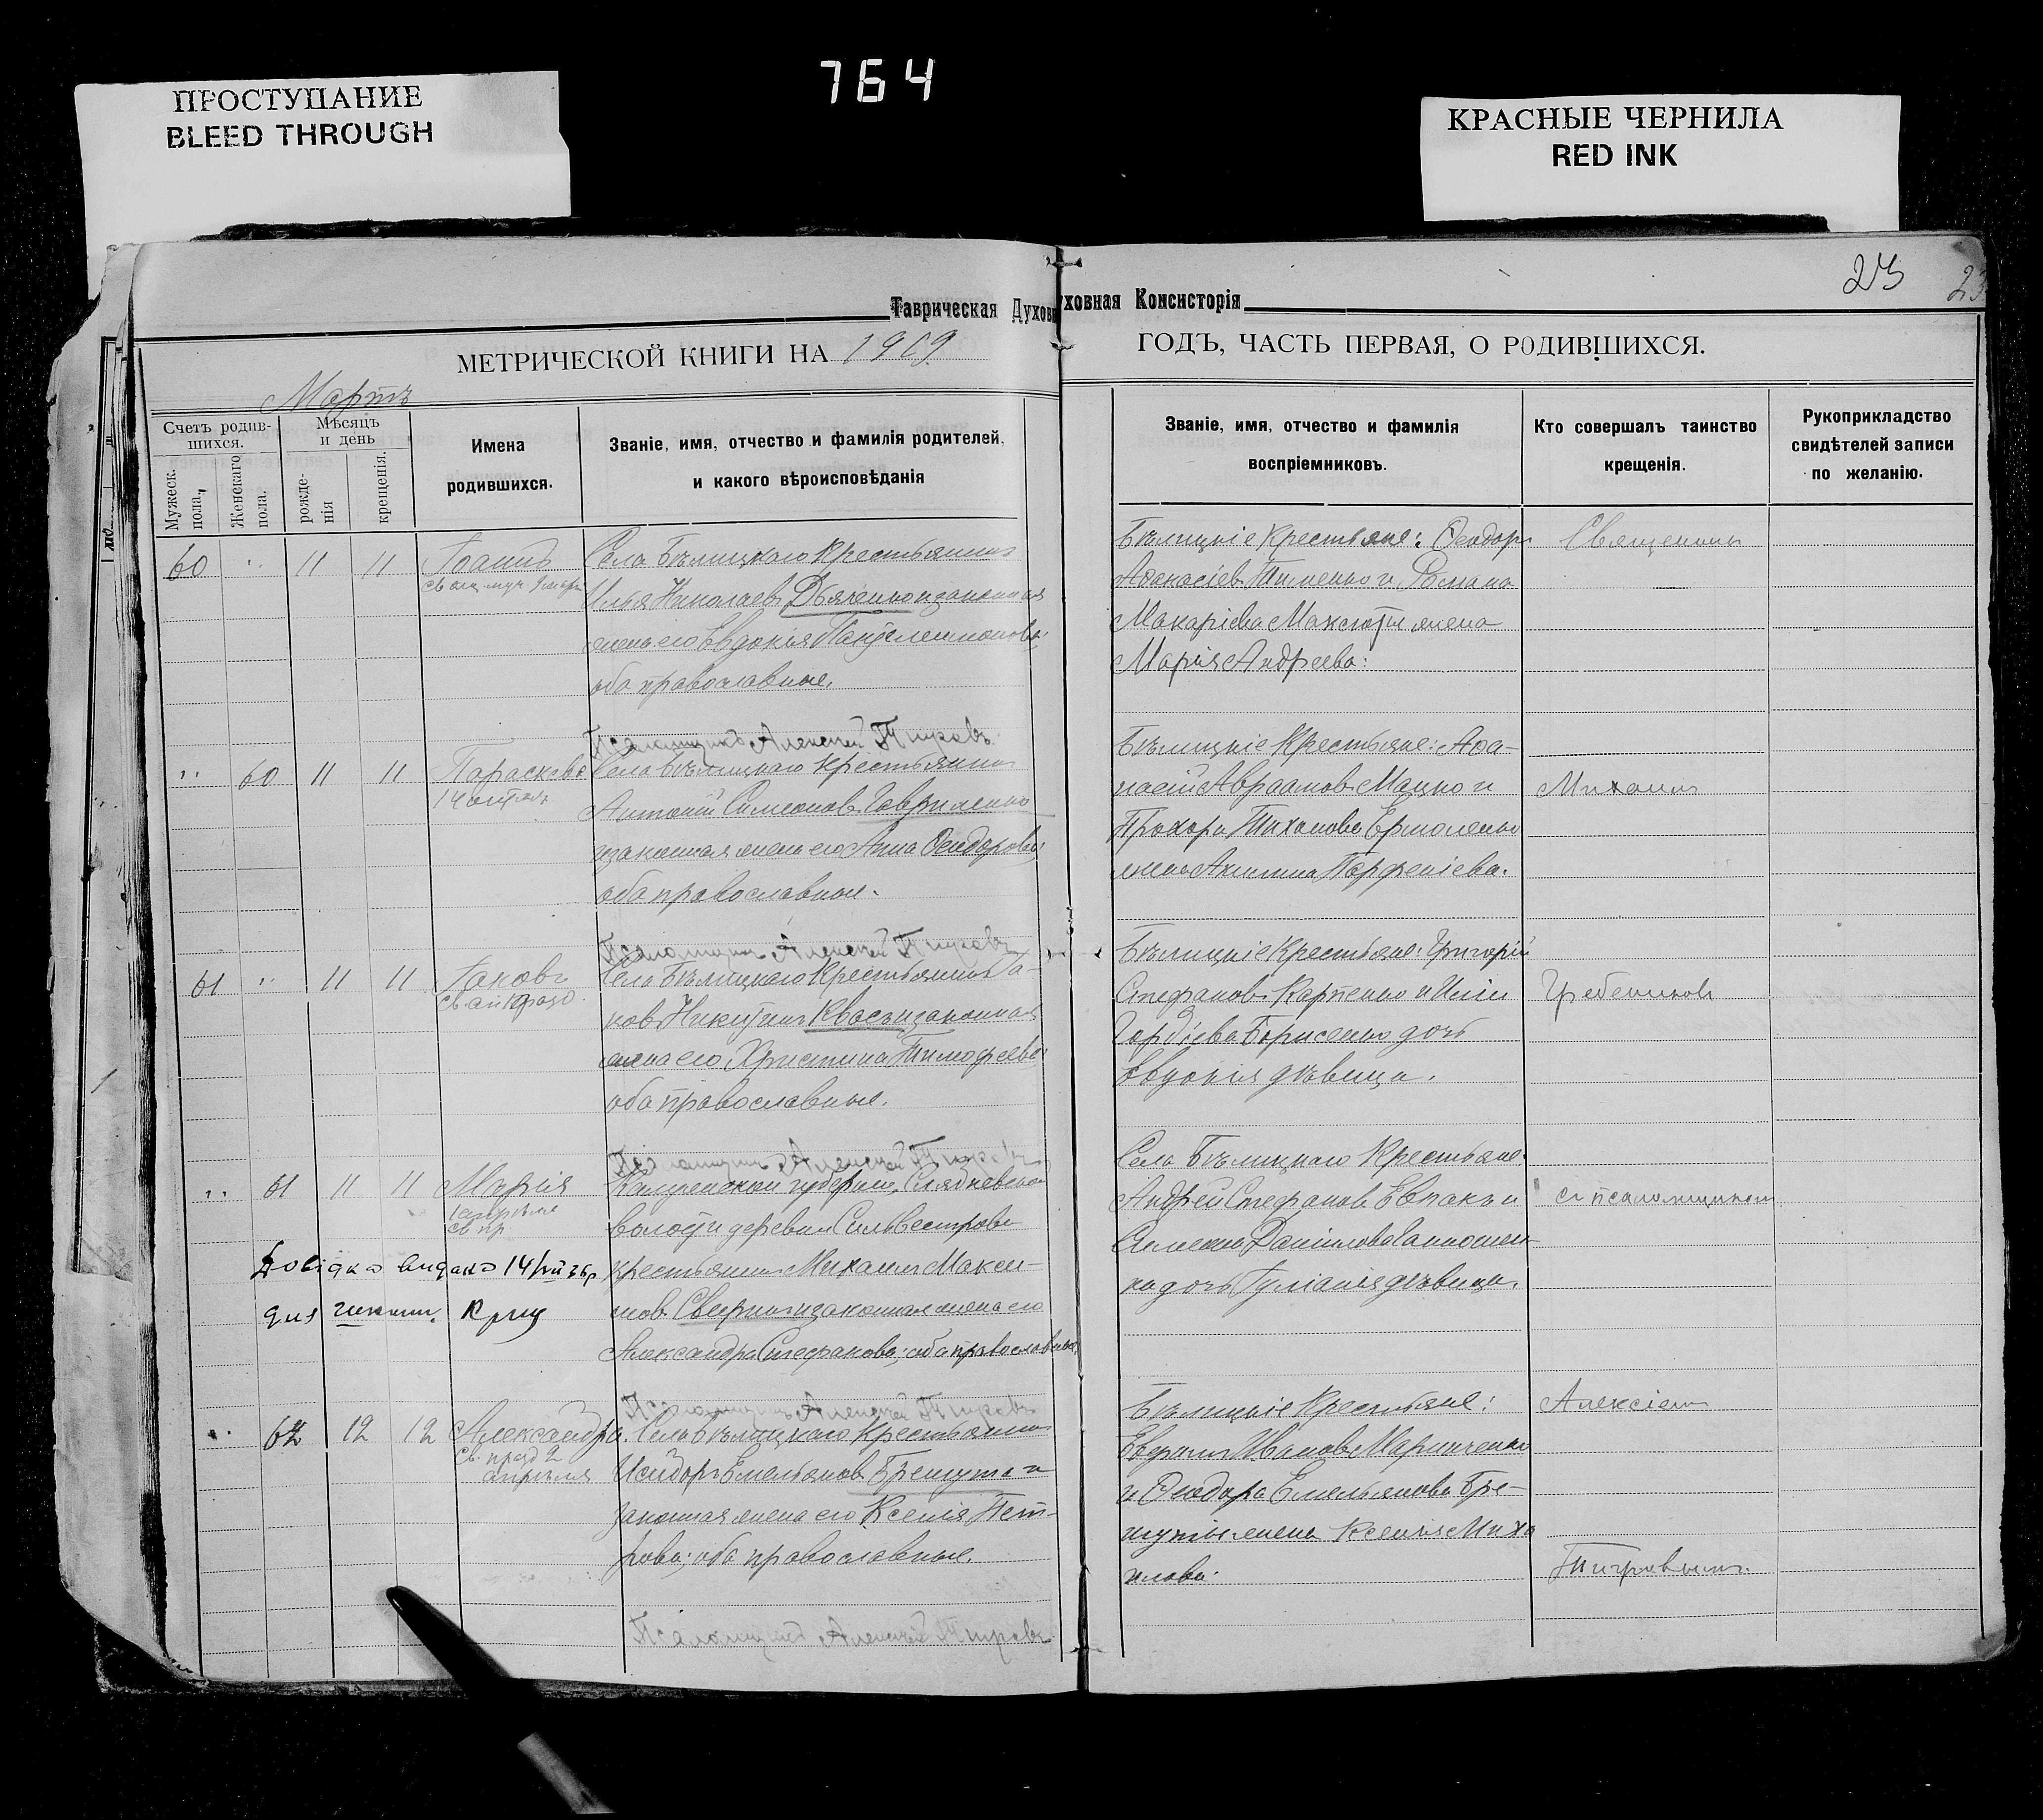 764
ПРОСТУПАНИЕ
BLEED THROUGH
КРАСНЫЕ ЧЕРНИЛА
RED INK
23
23
Таврическая Духовная Консисторія
МЕТРИЧЕСКОЙ КНИГИ НА 1909
ГОДЪ, ЧАСТЬ ПЕРВАЯ, О РОДИВШИХСЯ.
Мартъ
Счетъ родив-
шихся.
Мужеск.
пола.
Женскаго
пола.
Мѣсяцъ
и день
рожде-
нія
крещенія.
Имена
родившихся.
Званіе, имя, отчество и фамилія родителей,
и какого вѣроисповѣданія
Званіе, имя, отчество и фамилія
воспріемниковъ.
Кто совершалъ таинство
крещенія.
Рукоприкладство
свидѣтелей записи
по желанію.
60 " 11 11 Іоаннъ
Села Бѣлицкаго крестьянинъ
Илья Николаевъ Дьяченко и законная
жена его Евдокія Пантелеимонова;
оба православные.
Псаломщикъ Алексѣй Тигровъ
Бѣлицкіе крестьяне: Ѳеодоръ
Аѳанасіевъ Тименко и Романа
Макаріева жена
Марія Андреева.
Священникъ
" 60 11 11 Параскева
Села Бѣлицкаго крестьянинъ
Антоній Симеоновъ Гавриленко
и законная жена его Анна Ѳеодорова;
оба православные.
Псаломщикъ Алексѣй Тигровъ
Бѣлицкіе крестьяне: Аѳа-
насій Авраамовъ Мацко и
Прохора Тихонова Ермоленко
жена Акилина Парфеніева.
Михаилъ
61 " 11 11 Іаковъ
Села Бѣлицкаго крестьянинъ Іа-
ковъ Никитинъ Квасъ и законная
жена его Христина Тимофеева;
оба православные.
Псаломщикъ Алексѣй Тигровъ
Бѣлицкіе крестьяне: Григорій
Стефановъ Карпенко и Иліи
Гордіева Борисенко дочь
Евдокія дѣвица.
Гребенниковъ
" 61 11 11 Марія
губерніи,
волости деревни Сильвестрова
крестьянинъ Михаилъ Макси-
мовъ и законная жена его
Александра Стефанова; оба православные.
Довідка видана 14/VII 36 р.
для
Псаломщикъ Алексѣй Тигровъ
Села Бѣлицкаго крестьяне:
Андрей Стефановъ Евпакъ и
Данилова
дочь Іуліанія дѣвица.
съ псаломщикомъ
" 62 12 12 Александра
св. празд 2
апрѣля
Села Бѣлицкаго крестьянинъ
Исидоръ Емельяновъ Брешута и
законная жена его Ксенія Пет-
рова; оба православные.
Псаломщикъ Алексѣй Тигровъ
Бѣлицкіе крестьяне:
Ивановъ Марниченко
и Ѳеодора Емельянова Бре-
шуты жена Ксенія Миха
илова.
Алексіемъ
Тигровымъ.